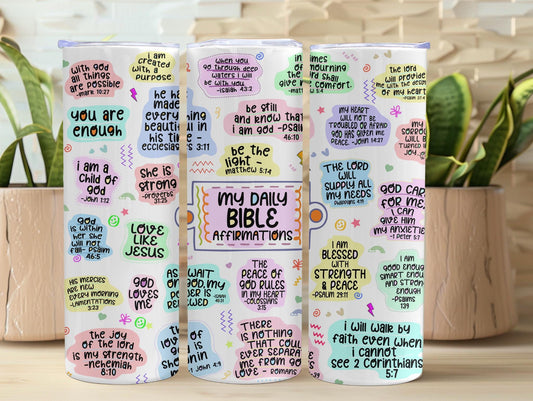 with God
all things
are possible
-mark 10:27
i am
created
with a
purpose
you are
enough
he has
made
every
beauti
his time -
ecclesiastes 3:11
i am a
child of
god
-John 1:12
she is
strong
-proverbs
31:25
god
is within
her she
will not
fall- Psalm
46:5
LOVE
LIKE
JESUS
HIS MERCIES
ARE NEW
EVERY MORNING
-LAMENTATIONS
3:23
GOD
LOVES
ME
the joy
of the lord
is my strength
-nehemiah
8:10
when you
go through deep
waters i will
be with you
-isaiah 43:2
be still
and know that
i am god -psalm
46:10
be the
light -
matthew 5:14
MY DAILY
BIBLE
AFFIRMATIONS
WAIT
GOD, MY
THE
PEACE OF
GOD RULES
IN MY HEART
-COLOSSIANS
3:15
THERE
IS NOTHING
THAT COULD
EVER SEPARATE
ME FROM GOD
LOVE - ROMANS
john 4:9
times
mourning
lord shall
comfort
the lord
will provide
me with the desires
of my heart
MY HEART
WILL NOT BE
TROUBLED OR AFRAID
GOD HAS GIVEN ME
PEACE -JOHN 14:27
MY
WILL BE
TURNED
JOY
THE LORD
WILL
SUPPLY ALL
MY NEEDS
GOD
FOR ME,
I CAN
GIVE HIM
MY
I AM
BLESSED
WITH
STRENGTH
& PEACE
-PSALM 29:11
I AM
GOOD ENOUGH
SMART ENOUGH
AND STRONG
ENOUGH
-PSALMS
139
i will walk by
faith even when
i cannot
see 2 Corinthians
5:7